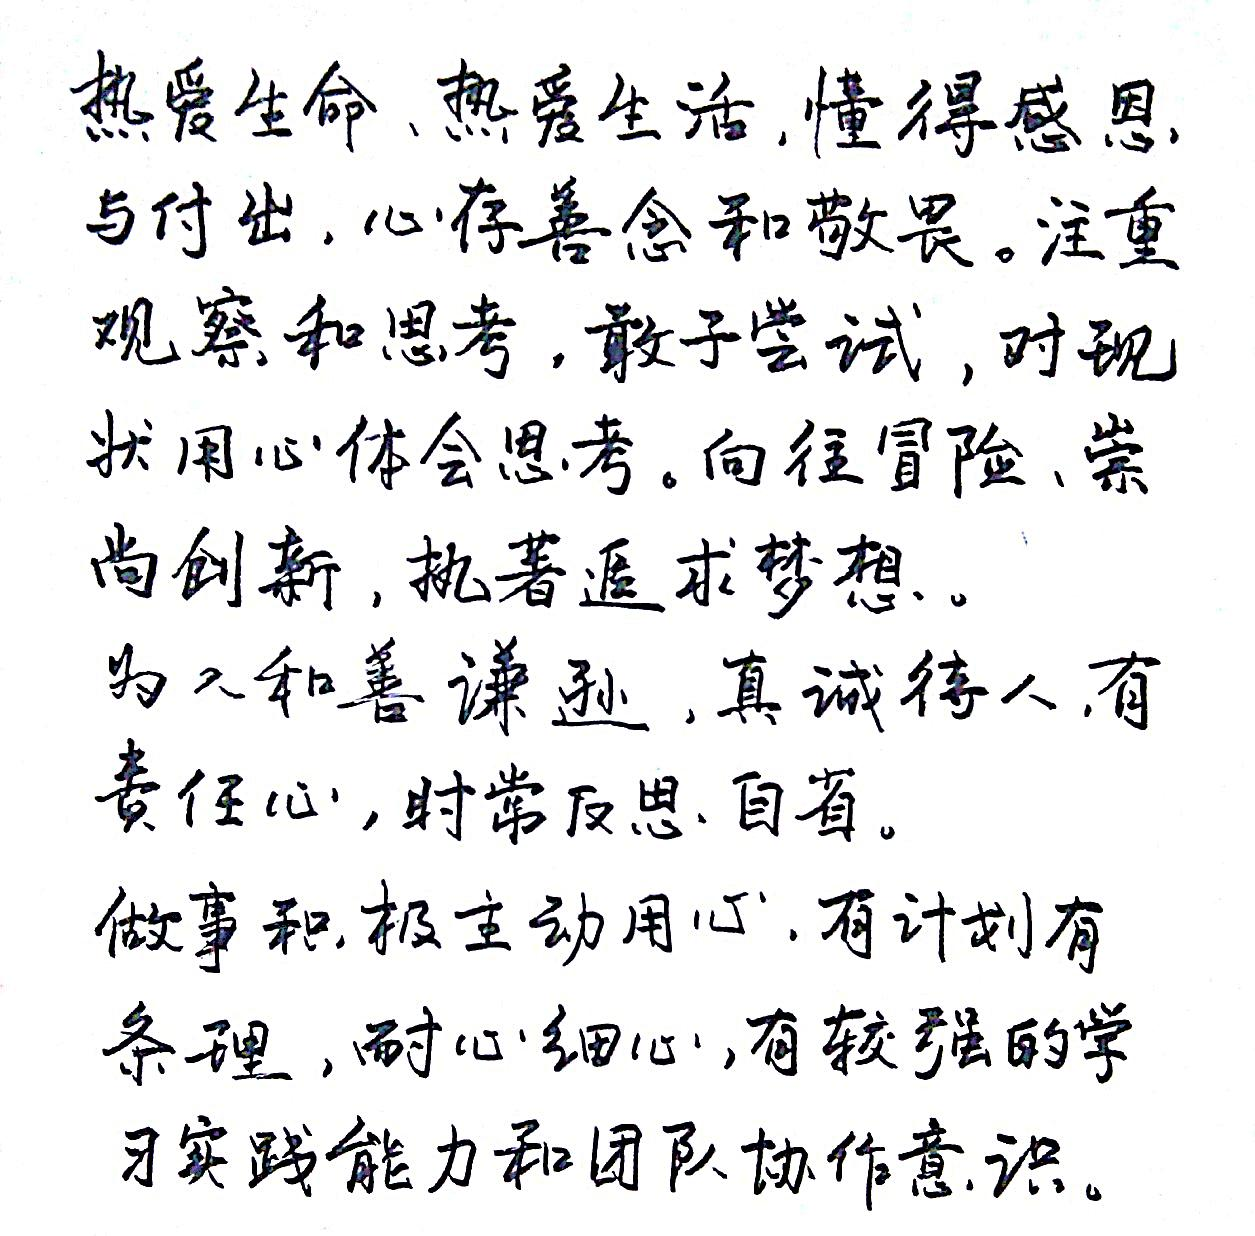 热爱生命、热爱生活，懂得感恩
与付出，心存善念和敬畏。注重
观察和思考，敢于尝试，对现
状用心体会思考。向往冒险、崇
尚创新，执著追求梦想。
为人和善谦逊，真诚待人，有
责任心，时常反思自省。
做事积极主动用心，有计划有
条理，耐心细心，有较强的学
习实践能力和团队协作意识。